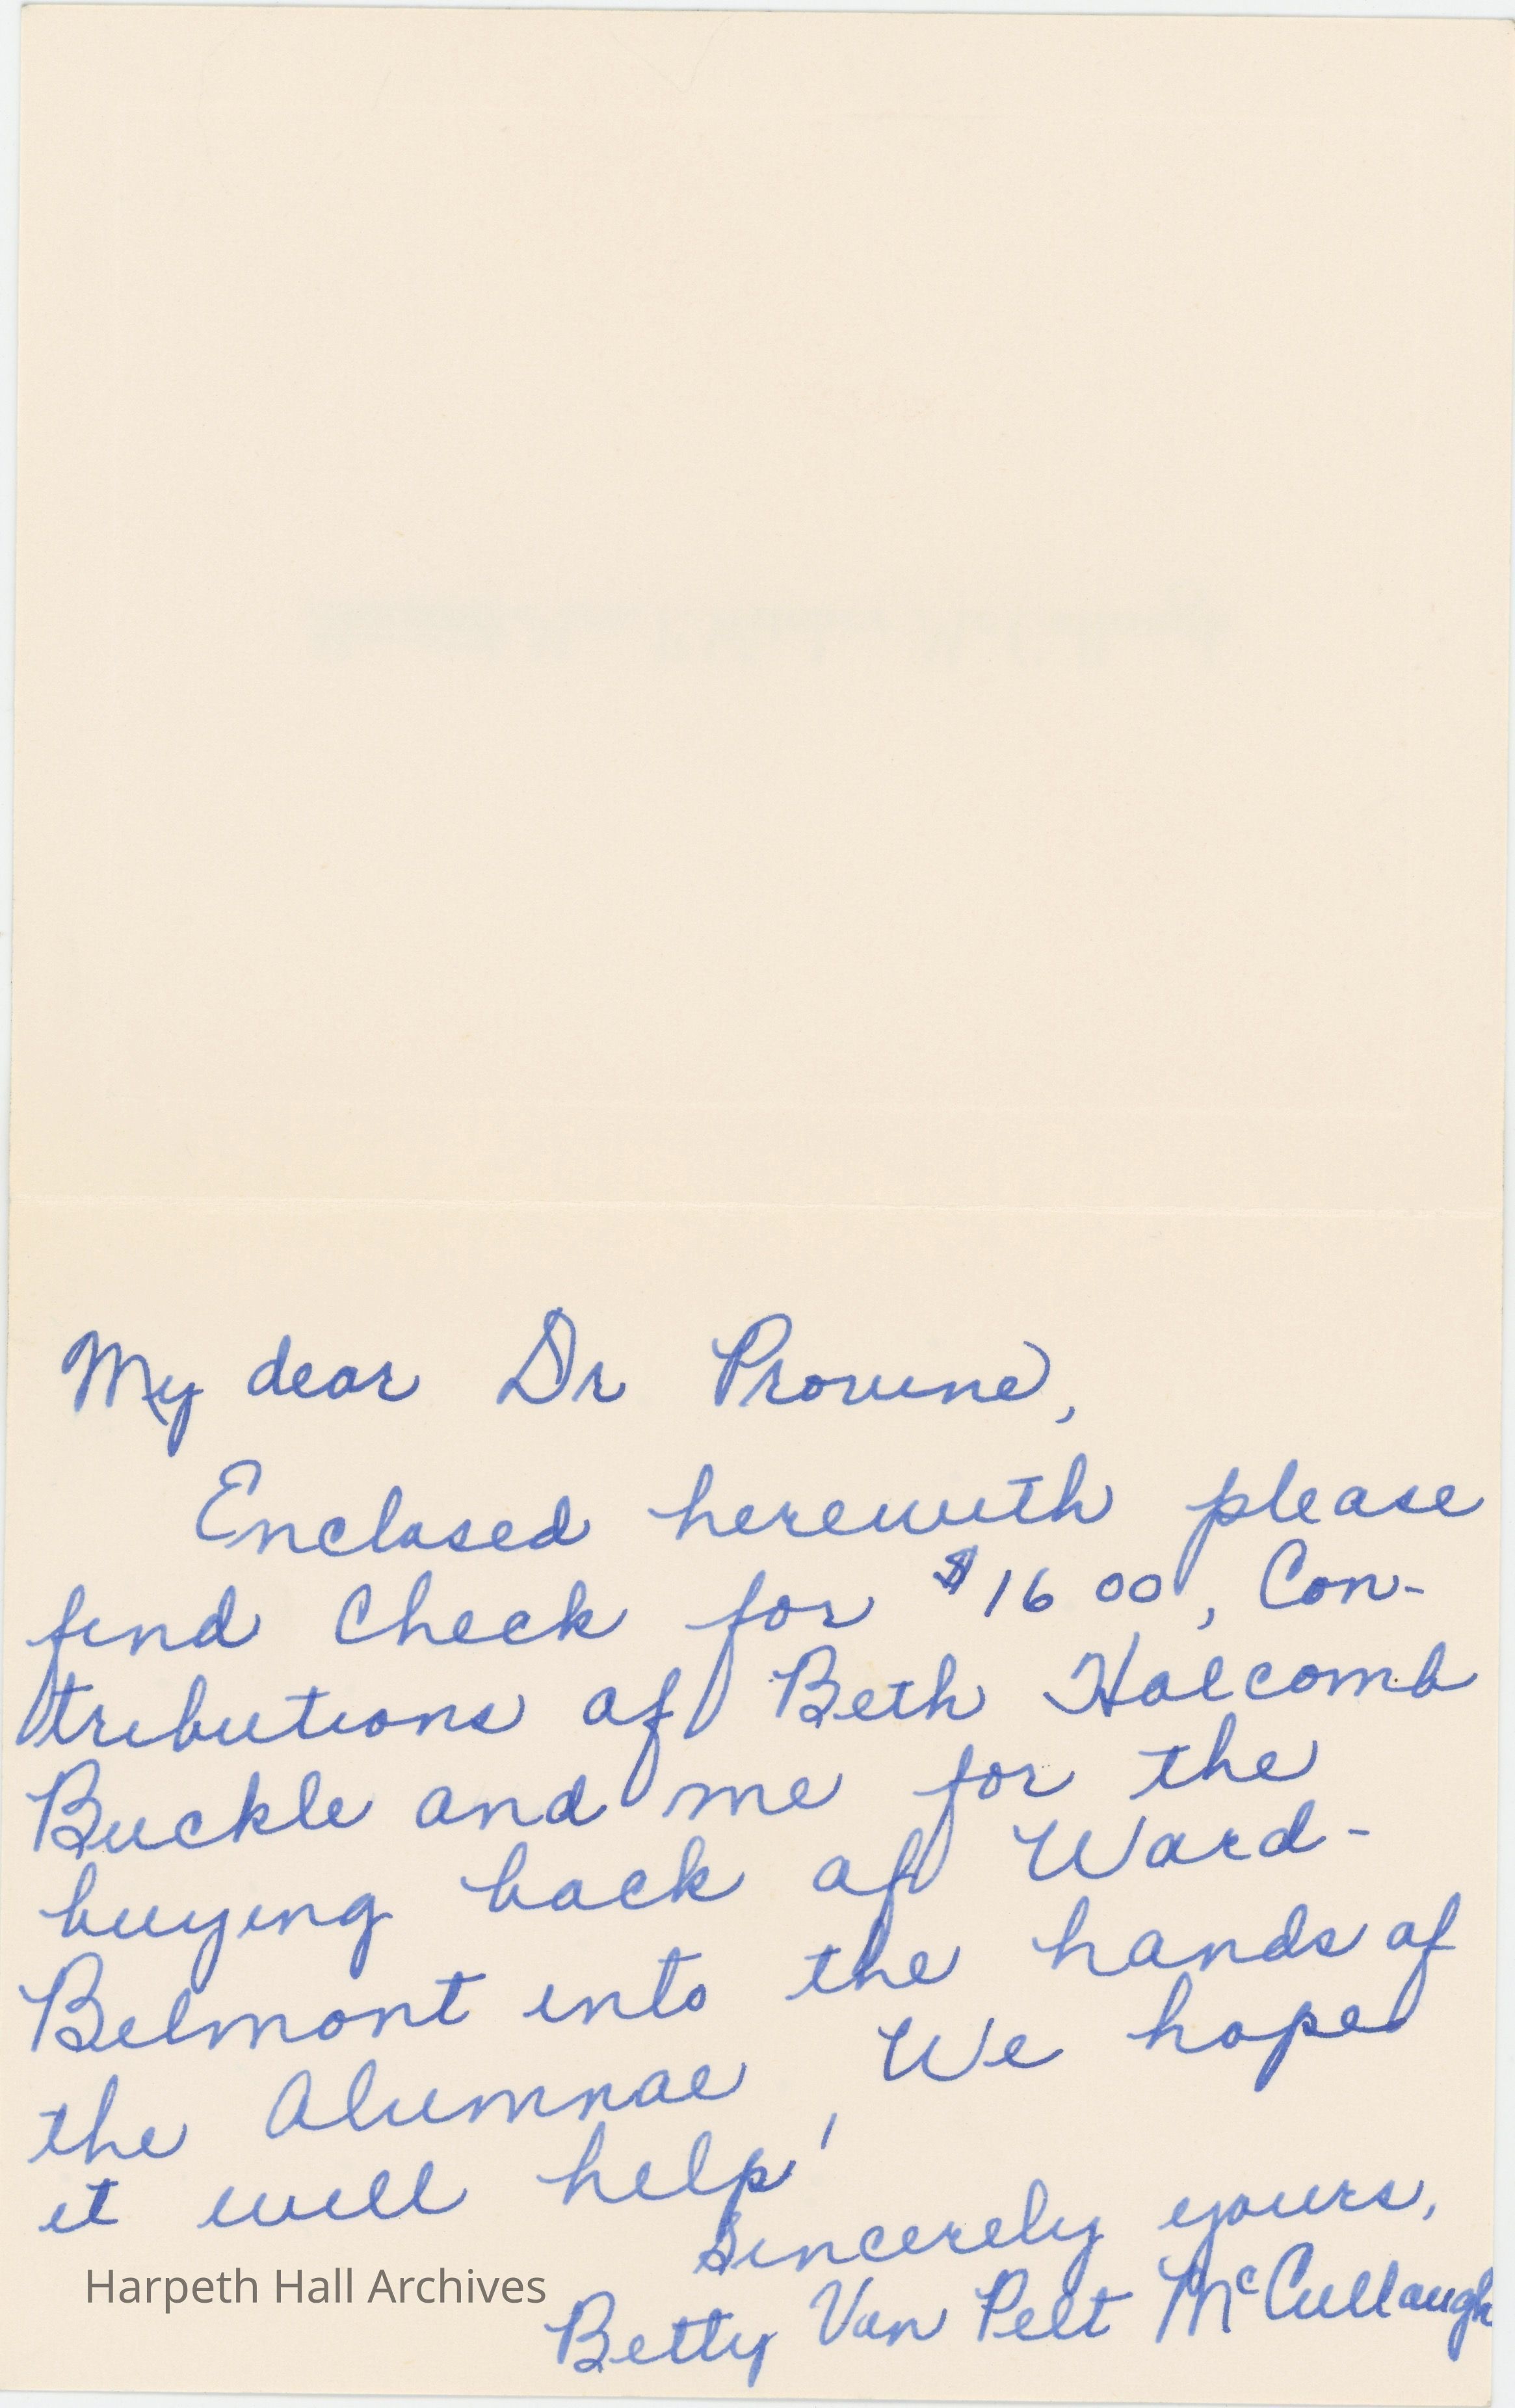 My dear Dr Provine,
Enclosed herewith please
find check for $16 00, Con-
tributions of Beth Halcomb
Buckle and me for the
buying back of Ward-
Belmont into the hands of
the Alumnae. We hope
it will help!
Sincerely yours,
Betty Van Pelt McCullaugh
Harpeth Hall Archives